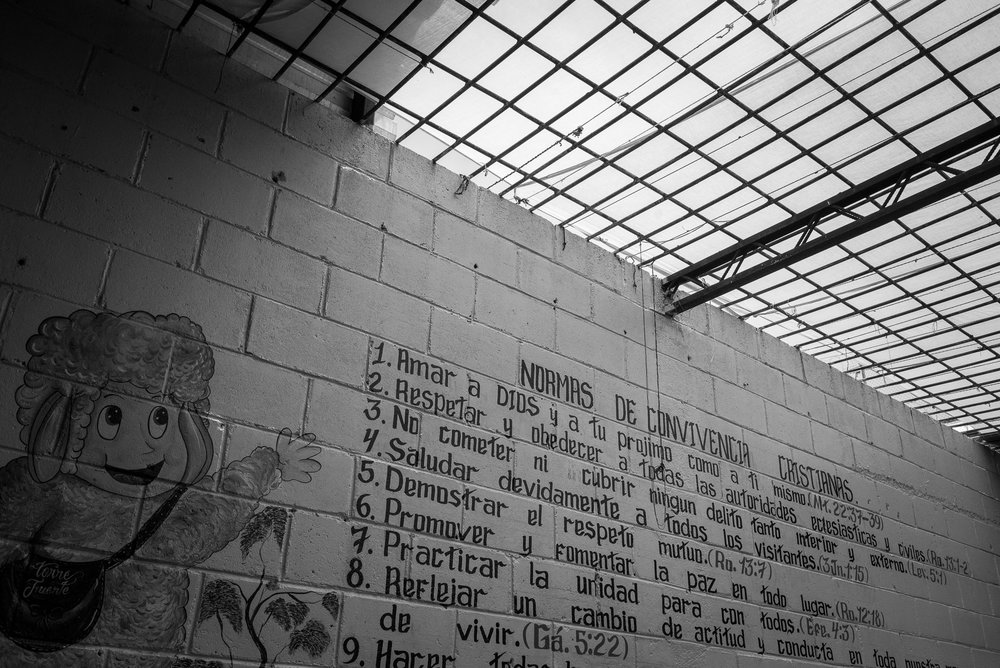 NORMAS DE CONVIVENCIA CRISTIANAS.
1. Amar a DIOS y a tu projimo como a ti mismo.(Mt. 22:37-39)
2. Respetar y obedecer a todas las autoridades eclesiasticas y civiles.(Ro. 13:1-2
3. No cometer ni cubrir ningun delito tanto interior y externo.(Lev. 5:1)
4. Saludar devidamente a todos los visitantes.(3Jn.1:15)
5. Demostrar el respeto mutuo.(Ro. 13:7)
6. Promover y fomentar la paz en todo lugar.(Ro. 12:18)
7. Practicar la unidad para con todos.(Efe. 4:3)
8. Reflejar un cambio de actitud y conducta en toda nuestra
de vivir.(Gá. 5:22)
9. Hacer todas
Torre
Fuerte